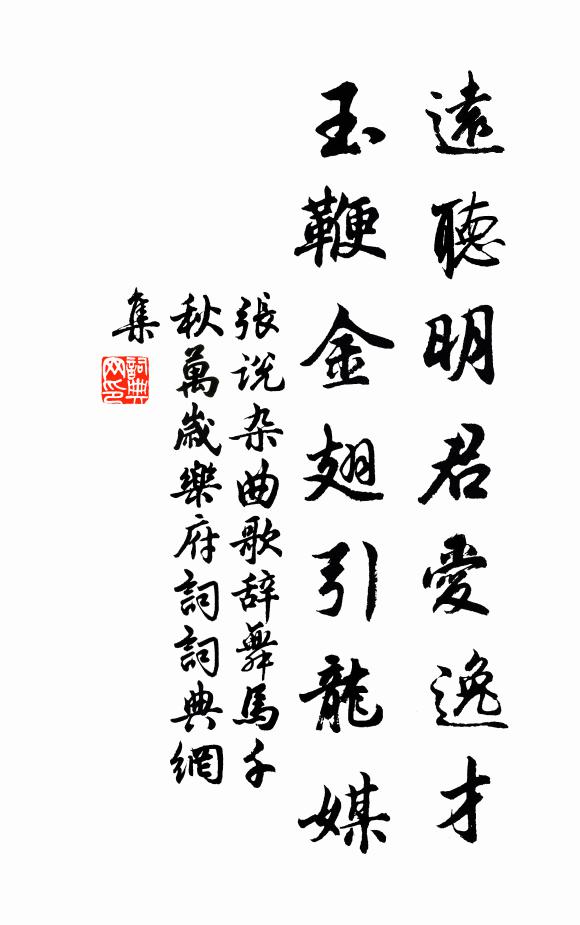 遠聽明君愛逸才
玉鞭金翅引龍媒
張說杂曲歌辞舞馬千
秋萬歲樂府詞詞典網
集
詞典
网印